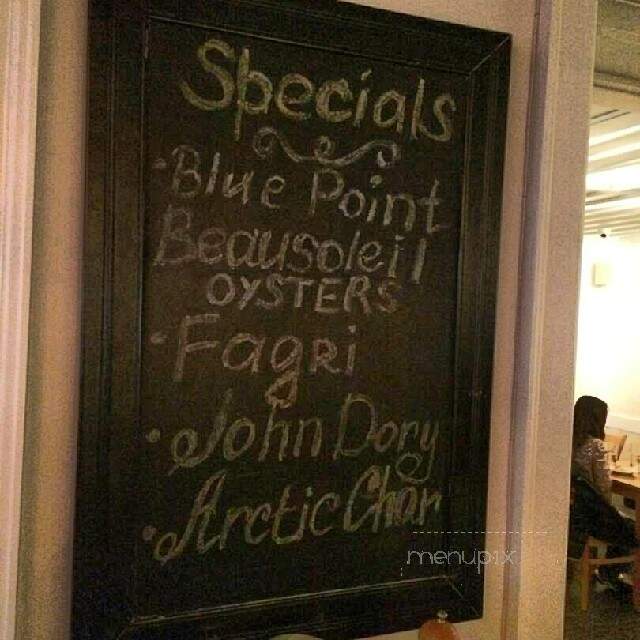 Specials
·Blue Point
Beausoleil
OYSTERS
·Fagri
·John Dory
·Arctic Char
menupix